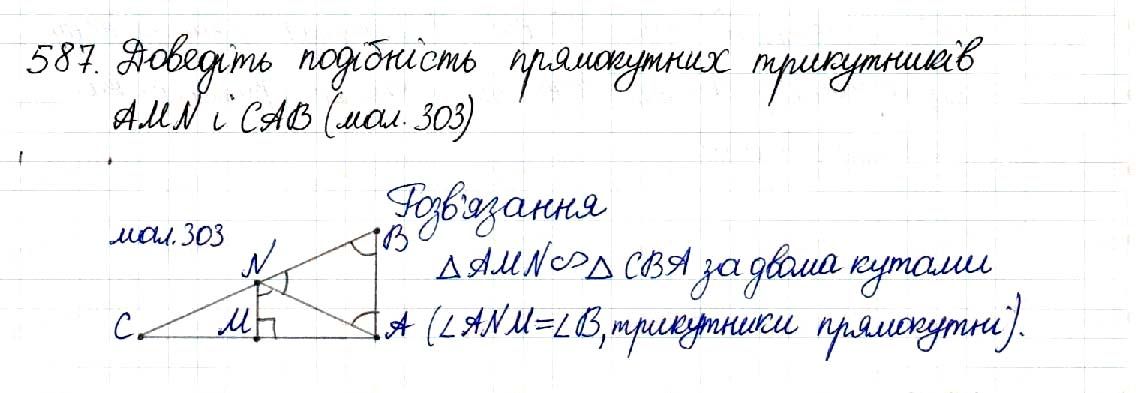 587. Доведіть подібність прямокутних трикутників
AMN і CAB (мал. 303)
Розв'язання
мал. 303
B
N
△ AMN ∽ △ CBA за двома кутами
C
M
A
(∠ANM=∠B, трикутники прямокутні).